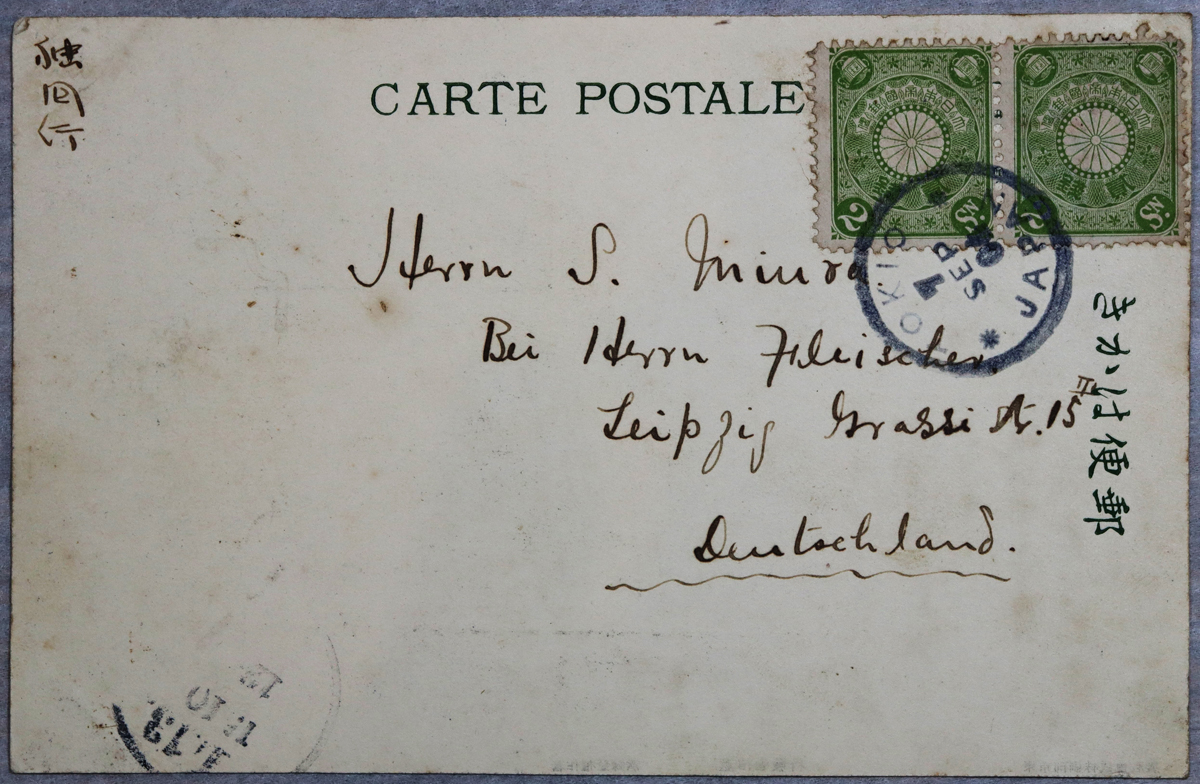 独国行
CARTE POSTALE
2 Sn.
2 Sn.
TOKIO JAPAN
SEP
Herrn S. Miura
Bei Herrn Fleischer.
Leipzig Grassi st. 15 II
Deutschland.
きかは便郵